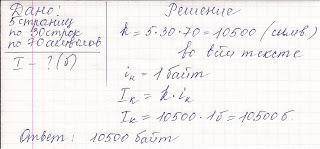 Дано:
5 страниц
по 30 строк
по 70 символов
I - ? (б)
Решение
k = 5·30·70 = 10500 (симв)
во всём тексте
iₖ = 1 байт
Iₖ = k·iₖ
Iₖ = 10500·1б = 10500б
Ответ: 10500 байт